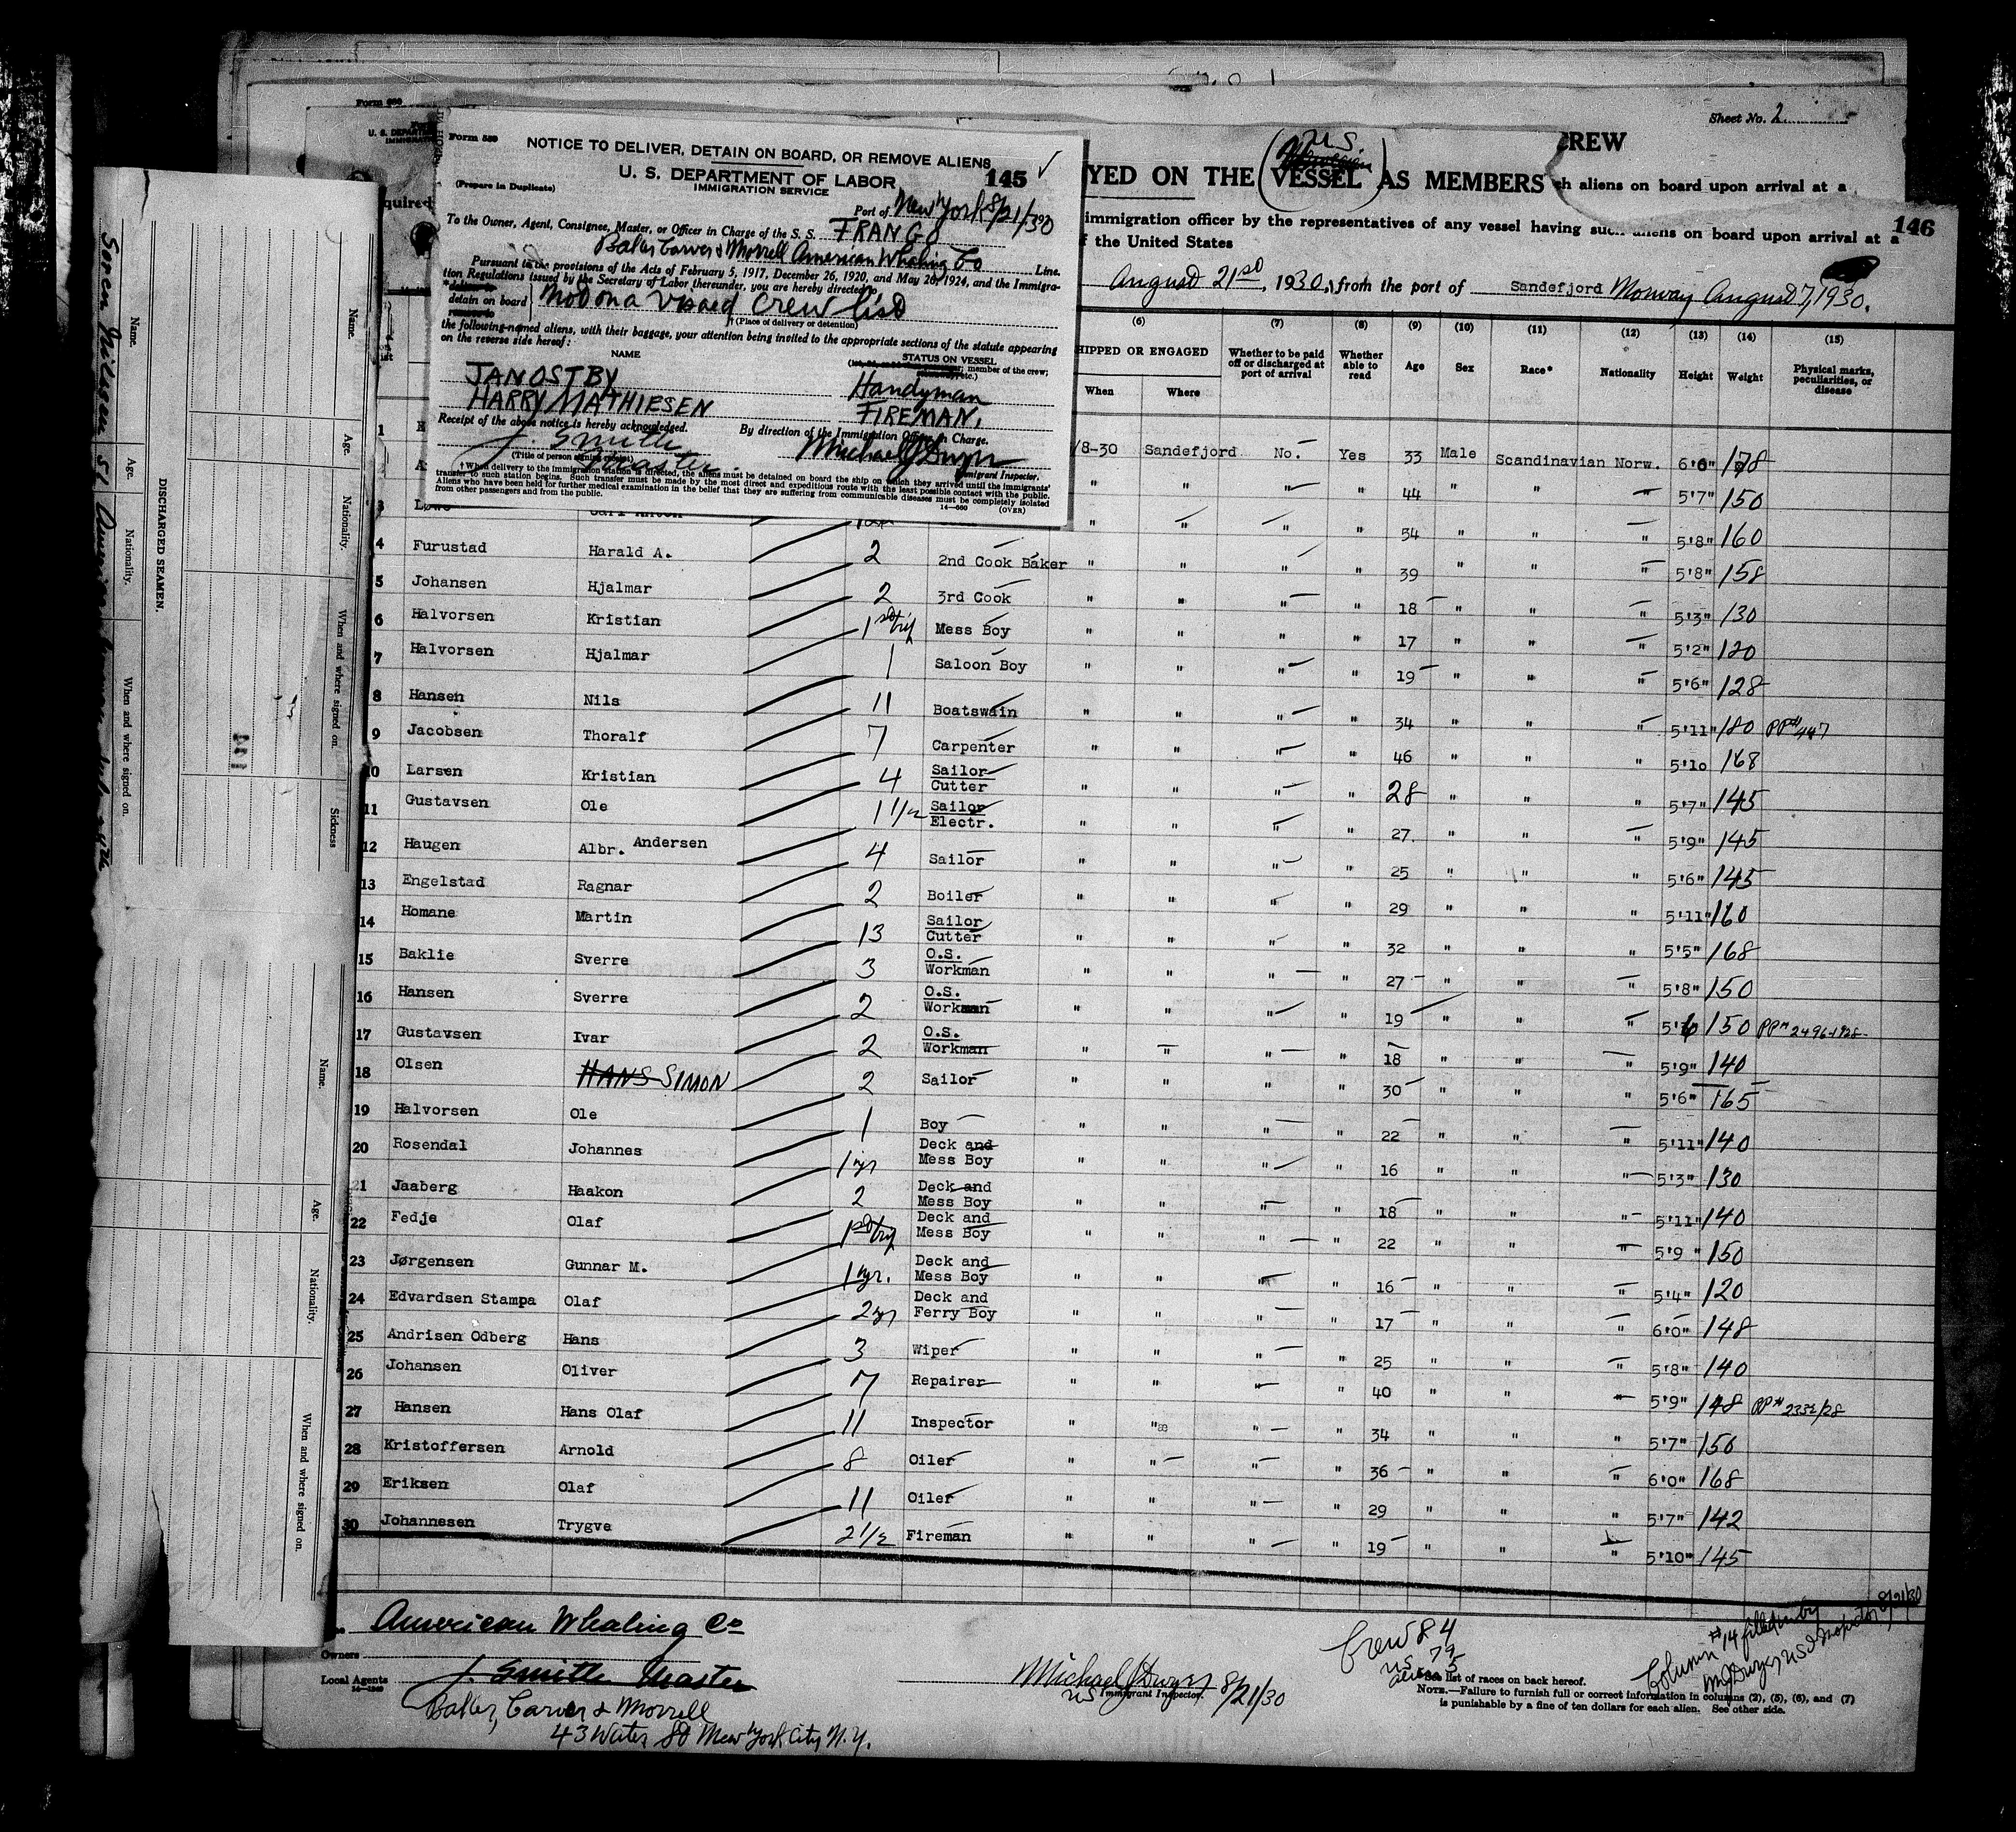 Sheet No. 2
CREW
U.S.
YED ON THE VESSEL AS MEMBERS
h aliens on board upon arrival at a
146
immigration officer by the representatives of any vessel having such aliens on board upon arrival at a
f the United States
August 21st, 1930, from the port of Sandefjord Norway August 7, 1930.
Form 580
NOTICE TO DELIVER, DETAIN ON BOARD, OR REMOVE ALIENS
U. S. DEPARTMENT OF LABOR 145
IMMIGRATION SERVICE
(Prepare in Duplicate)
Port of New York 8/21/30
To the Owner, Agent, Consignee, Master, or Officer in Charge of the S. S. FRANGO
American Whaling Co Line.
Pursuant to the provisions of the Acts of February 5, 1917, December 26, 1920, and May 26, 1924, and the Immigra-
tion Regulations issued by the Secretary of Labor thereunder, you are hereby directed to
detain on board Not on a visaed Crew list
† (Place of delivery or detention)
the following-named aliens, with their baggage, your attention being invited to the appropriate sections of the statute appearing
on the reverse side hereof:
NAME STATUS ON VESSEL
member of the crew;
JAN OSTBY Handyman
HARRY MATHIESEN FIREMAN,
Receipt of the above notice is hereby acknowledged. By direction of the Immigration Officer in Charge.
J. Smith Michael J Dwyer
(Title of person signing receipt) Master. Immigrant Inspector.
† When delivery to the immigration station is directed, the aliens must be detained on board the ship on which they arrived until the immigrants'
transfer to such station begins. Such transfer must be made by the most direct and expeditious route with the least possible contact with the public.
Aliens who have been held for further medical examination in the belief that they are suffering from communicable diseases must be completely isolated
from other passengers and from the public.
14—660 (OVER)
(6) (7) (8) (9) (10) (11) (12) (13) (14) (15)
HIPPED OR ENGAGED
When Where
Whether to be paid off or discharged at port of arrival
Whether able to read
Age Sex Race* Nationality Height Weight
Physical marks, peculiarities, or disease
1 /8-30 Sandefjord No. Yes 33 Male Scandinavian Norw. 6'0" 178
" " " " 44 " " " 5'7" 150
3 Carl Anton " " " " 54 " " " 5'8" 160
4 Furustad Harald A. 2 2nd Cook Baker " " " " 39 " " " 5'8" 158
5 Johansen Hjalmar 2 3rd Cook " " " " 18 " " " 5'3" 130
6 Halvorsen Kristian 1st try Mess Boy " " " " 17 " " " 5'2" 120
7 Halvorsen Hjalmar 1 Saloon Boy " " " " 19 " " " 5'6" 128
8 Hansen Nils 11 Boatswain " " " " 34 " " " 5'11" 180
9 Jacobsen Thoralf 7 Carpenter " " " " 46 " " " 5'10 168
10 Larsen Kristian 4 Sailor Cutter " " " " 28 " " " 5'7" 145
11 Gustavsen Ole 1 1/2 Sailor Electr. " " " " 27. " " " 5'9" 145
12 Haugen Albr. Andersen 4 Sailor " " " " 25 " " " 5'6" 145
13 Engelstad Ragnar 2 Boiler " " " " 29 " " " 5'11" 160
14 Homane Martin 13 Sailor Cutter " " " " 32 " " " 5'5" 168
15 Baklie Sverre 3 O.S. Workman " " " " 27 " " " 5'8" 150
16 Hansen Sverre 2 O.S. Workman " " " " 19 " " " 150 PP# 2496-1928
17 Gustavsen Ivar 2 O.S. Workman " " " " 18 " " " 5'9" 140
18 Olsen HANS SIMON 2 Sailor " " " " 30 " " " 5'6" 165
19 Halvorsen Ole 1 Boy " " " " 22 " " " 5'11" 140
20 Rosendal Johannes 1 yr Deck and Mess Boy " " " " 16 " " " 5'3" 130
21 Jaaberg Haakon 2 Deck and Mess Boy " " " " 18 " " " 5'11" 140
22 Fedje Olaf 1st try Deck and Mess Boy " " " " 22 " " " 5'9 " 150
23 Jørgensen Gunnar M. 1 yr. Deck and Mess Boy " " " " 16 " " " 5'4" 120
24 Edvardsen Stampa Olaf 2 yr Deck and Ferry Boy " " " " 17 " " " 6'0" 148
25 Andrisen Odberg Hans 3 Wiper " " " " 25 " " " 5'8" 140
26 Johansen Oliver 7 Repairer " " " " 40 " " " 5'9" 148 PP# 2332/28
27 Hansen Hans Olaf 11 Inspector " " " " 34 " " " 5'7" 156
28 Kristoffersen Arnold 8 Oiler " " " " 36 " " " 6'0" 168
29 Eriksen Olaf 11 Oiler " " " " 29 " " " 5'7" 142
30 Johannesen Trygve 2 1/2 Fireman " " " " 19 " " " 5'10" 145
American Whaling Co
Owners
Local Agents J. Smith Master
14—1240
Carver & Morrell
43 Water St New York City N.Y.
Michael J Dwyer 8/21/30
US Immigrant Inspector.
Crew 84
US 79
alien 5
See list of races on back hereof.
NOTE.—Failure to furnish full or correct information in columns (2), (5), (6), and (7)
is punishable by a fine of ten dollars for each alien. See other side.
Column #14 filled in by
MJ Dwyer US I Inspector 8/21/30
DISCHARGED SEAMEN.
Name. Age. Nationality. When and where signed on.
Soren Nilsen 51 American
Name. Age. Nationality. When and where signed on. Sickness
Name. Age. Nationality. When and where signed on.